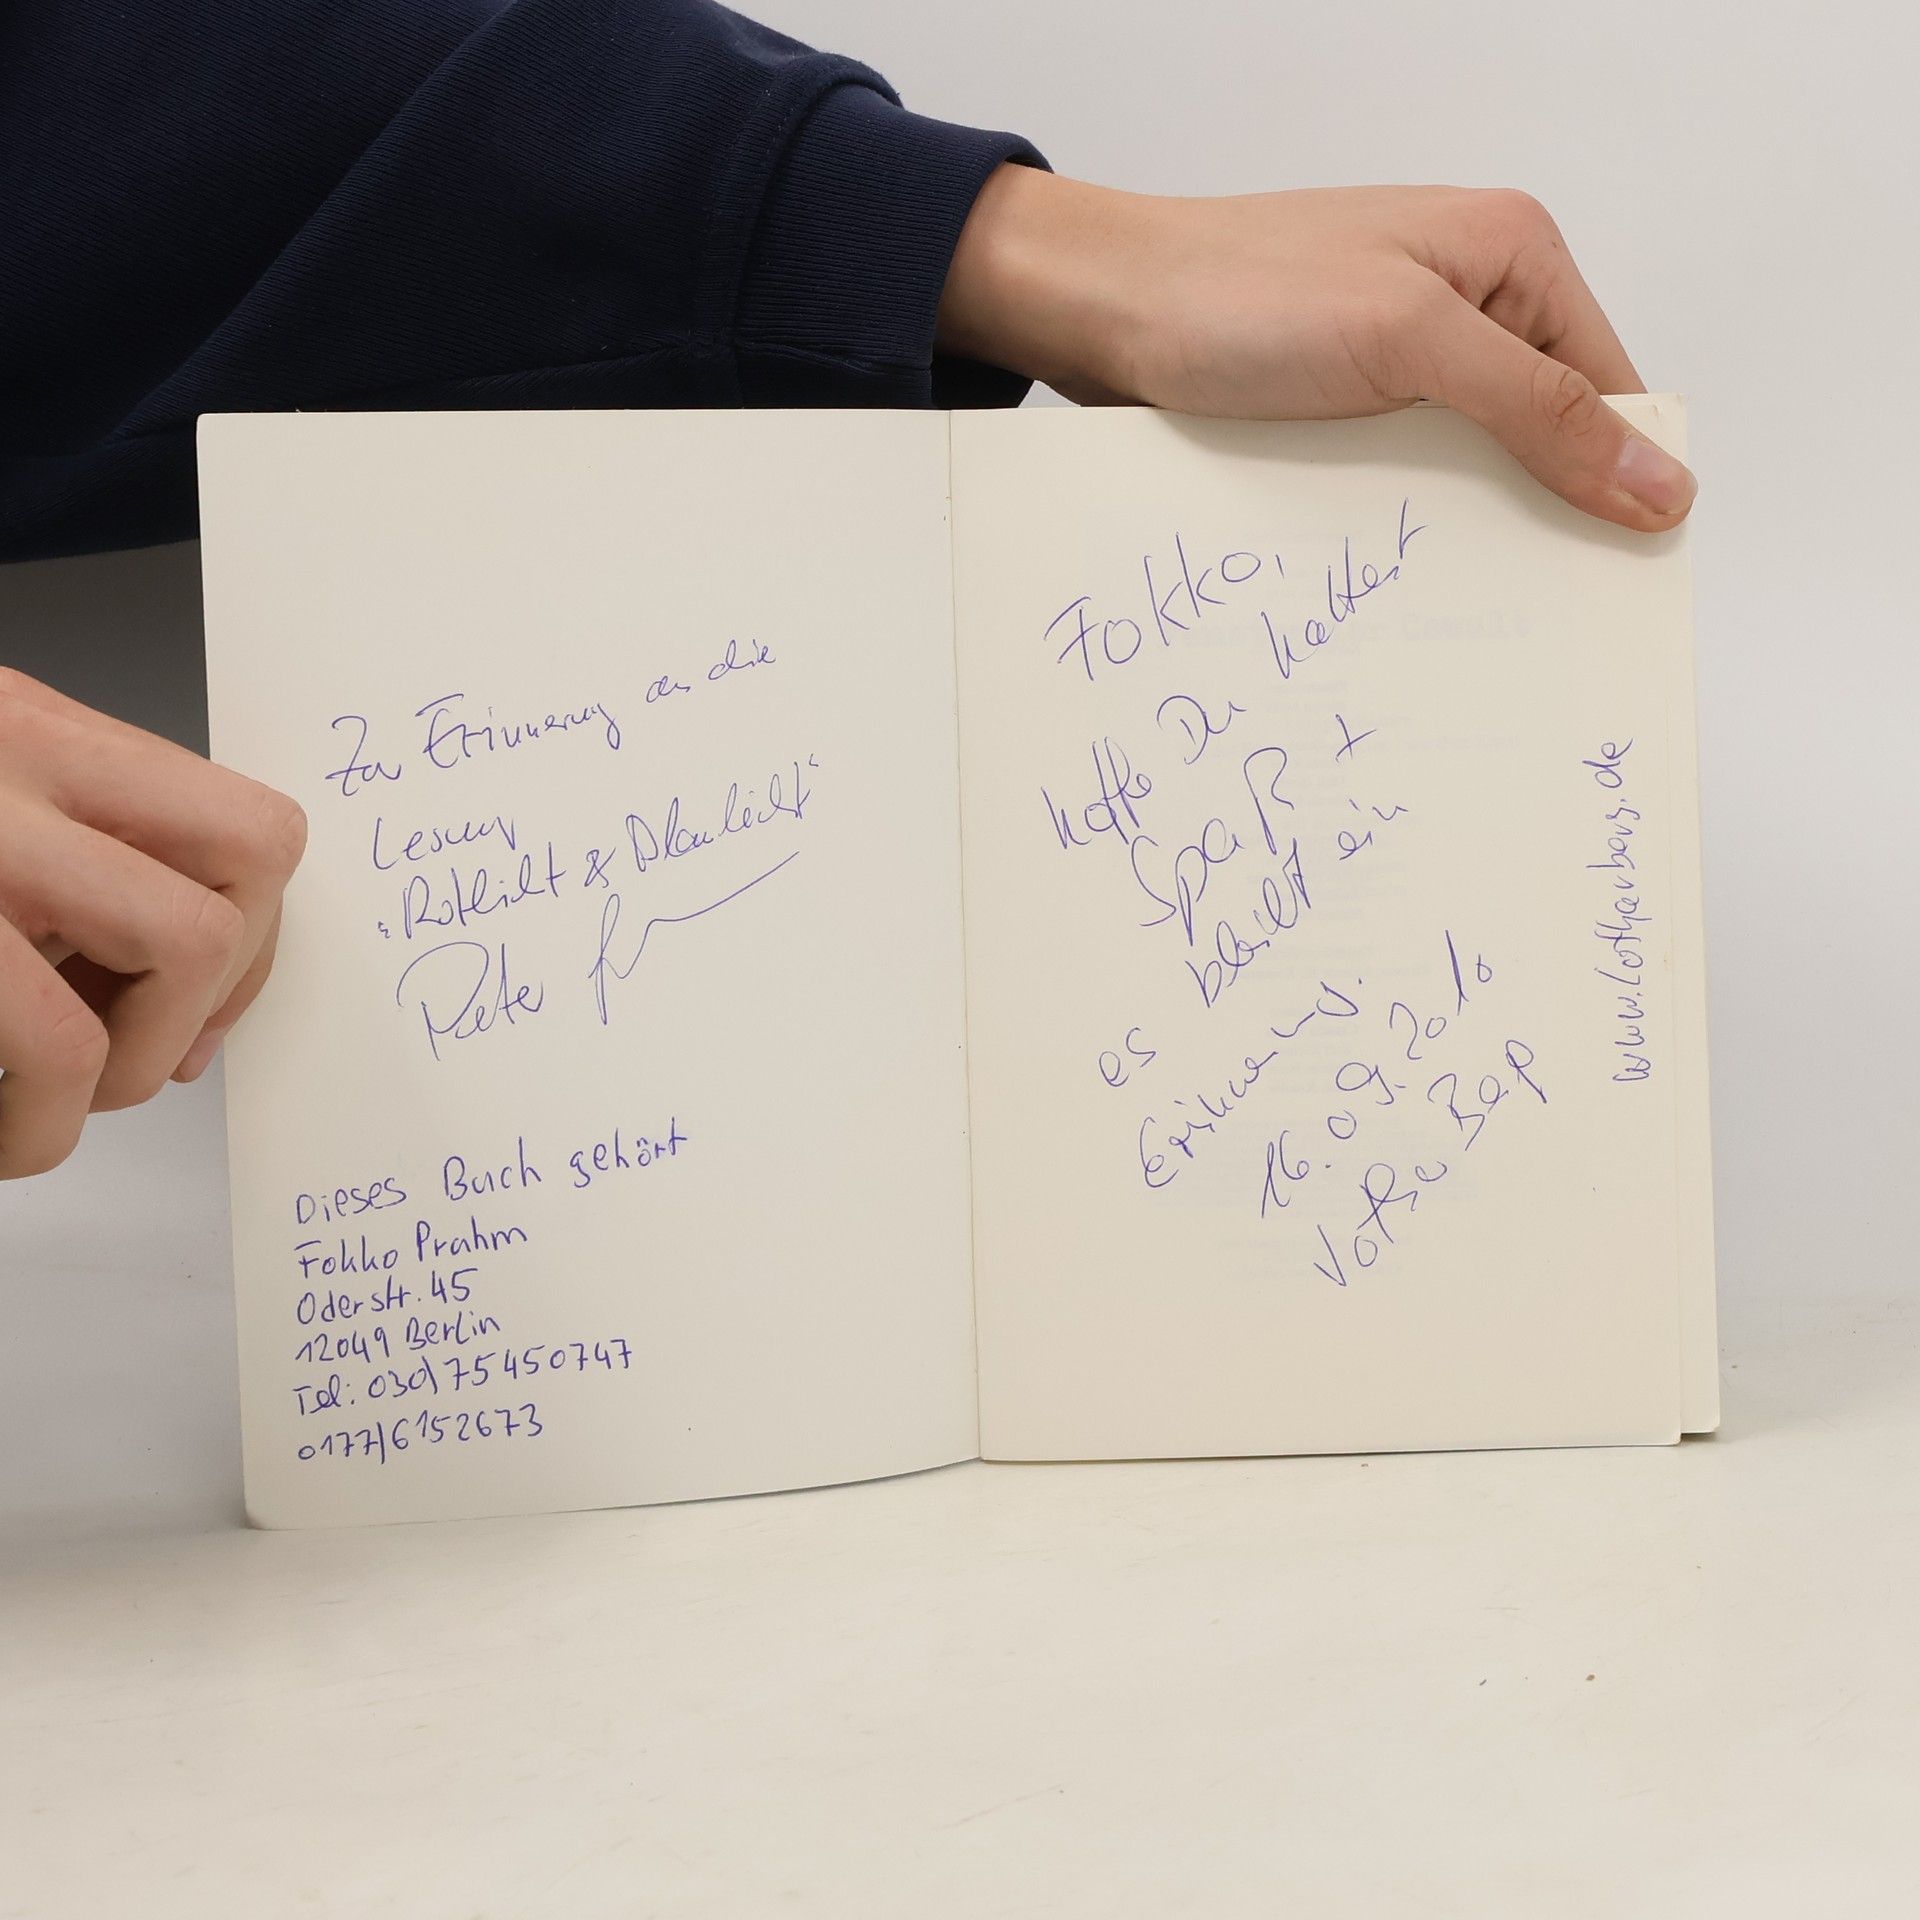 Zur Erinnerung an die
Lesung
„Rotlicht & Blaulicht“
Peter
Dieses Buch gehört
Fokko Prahm
Oderstr. 45
12049 Berlin
Tel: 030/75450747
0177/6152673
Fokko,
hoffe Du hattest
Spaß +
es bleibt ein
16.09.2010
Lothar Berg
www.lotharberg.de